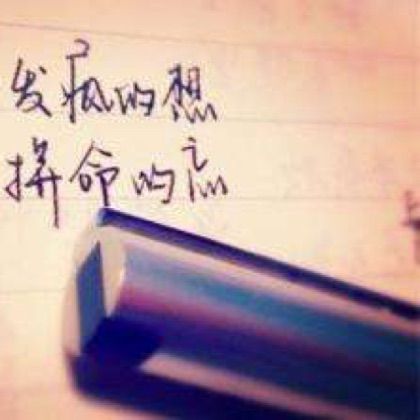 发疯的想
拼命的忘